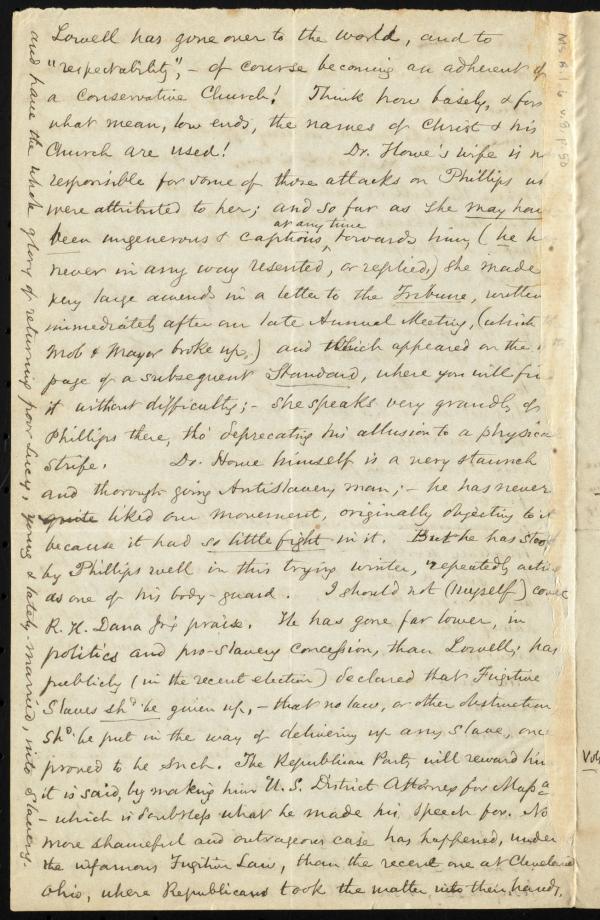 Lowell has gone over to the world, and to
"respectability", – of course becoming an adherent of
a conservative Church! Think how basely, & for
what mean, low ends, the names of Christ & his
Church are used! Dr. Howe's wife is n
responsible for some of those attacks on Phillips w
were attributed to her; and so far as she may hav
been ungenerous & captious, at any time towards him, (he h
never in any way resented, or replied,) she made
very large amends in a letter to the Tribune, written
immediately after our late Annual Meeting, (which
Mob & Mayor broke up,) and which appeared on the
page of a subsequent Standard, where you will fin
it without difficulty; – She speaks very grandly of
Phillips there, tho' deprecating his allusion to a physica
strife. Dr. Howe himself is a very staunch
and thorough-going Antislavery man; – he has never
quite liked our movement, originally objecting to it
because it had so little fight in it. But he has stoo
by Phillips well in this trying winter, repeatedly actin
as one of his body-guard. I should not (myself) cove
R. H. Dana Jr's praise. He has gone far lower, in
politics and pro-slavery concession, than Lowell; has
publicly (in the recent election) declared that Fugitive
Slaves shd. be given up, – that no law, or other obstruction
shd. be put in the way of delivering up any slave, onc
proved to be such. The Republican Party will reward him
it is said, by making him U. S. District Attorney for Massa
– which is doubtless what he made his speech for. No
more shameful and outrageous case has happened, under
the infamous Fugitive Law, than the recent one at Cleveland
Ohio, where Republicans took the matter into their hands,
and have the whole glory of returning poor Lucy, young & lately-married, into Slavery.
Ms. A.1.6 v.9 p.50
Vol